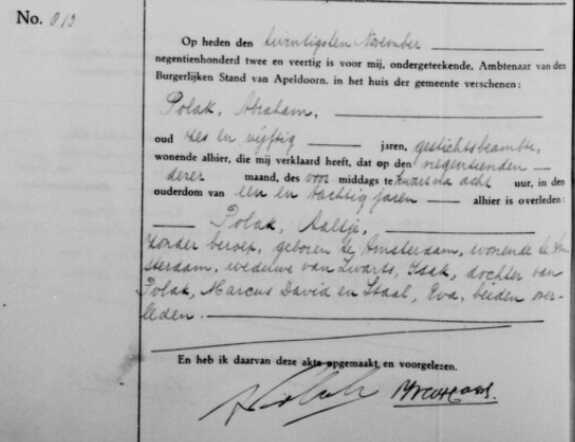 No. 819
Op heden den twintigsten November
negentienhonderd twee en veertig is voor mij, ondergeteekende, Ambtenaar van den
Burgerlijken Stand van Apeldoorn, in het huis der gemeente verschenen:
Polak, Abraham,
oud zes en vijftig jaren, gestichtsbeambte,
wonende alhier, die mij verklaard heeft, dat op den negentienden
dezer maand, des voor middags te kwart na acht uur, in den
ouderdom van een en tachtig jaren alhier is overleden:
Polak, Aaltje,
zonder beroep, geboren te Amsterdam, wonende te Am-
sterdam, weduwe van Zwarts, Izak, dochter van
Polak, Marcus David en Staal, Eva, beiden over-
leden.
En heb ik daarvan deze akte opgemaakt en voorgelezen.
A Polak